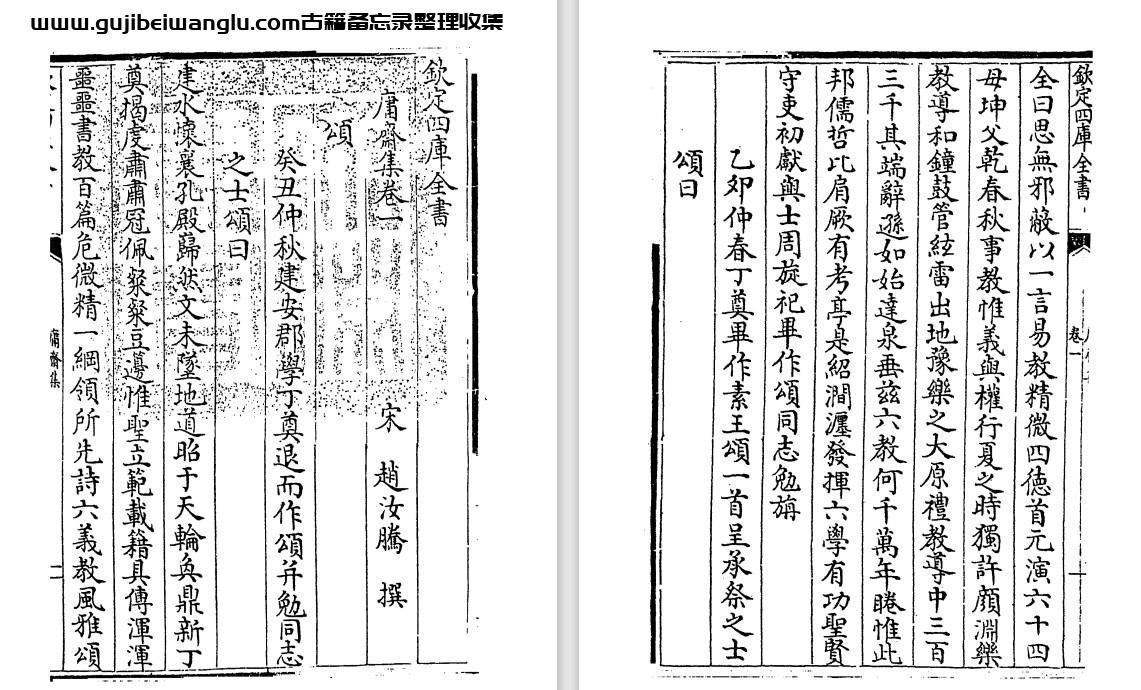 www.gujibeiwanglu.com古籍备忘录整理收集
欽定四庫全書
庸齋集卷一
宋 趙汝騰 撰
頌
癸丑仲秋建安郡學丁奠退而作頌并勉同志
之士頌曰
建水懷襄孔殿巋然文未墜地道昭于天輪奐鼎新丁
奠揭虔肅肅冠佩粲粲豆籩惟聖立範載籍具傳渾渾
噩噩書教百篇危微精一綱領所先詩六義教風雅頌
庸齋集
欽定四庫全書
卷一
全曰思無邪蔽以一言易教精微四徳首元演六十四
母坤父乾春秋事教惟義與權行夏之時獨許顔淵樂
教導和鐘鼓管絃雷出地豫樂之大原禮教導中三百
三千其端辭遜如始達泉垂兹六教何千萬年睠惟此
邦儒哲比肩厥有考亭是紹澗瀍發揮六學有功聖賢
守吏初獻與士周旋祀畢作頌同志勉旃
乙卯仲春丁奠畢作素王頌一首呈承祭之士
頌曰